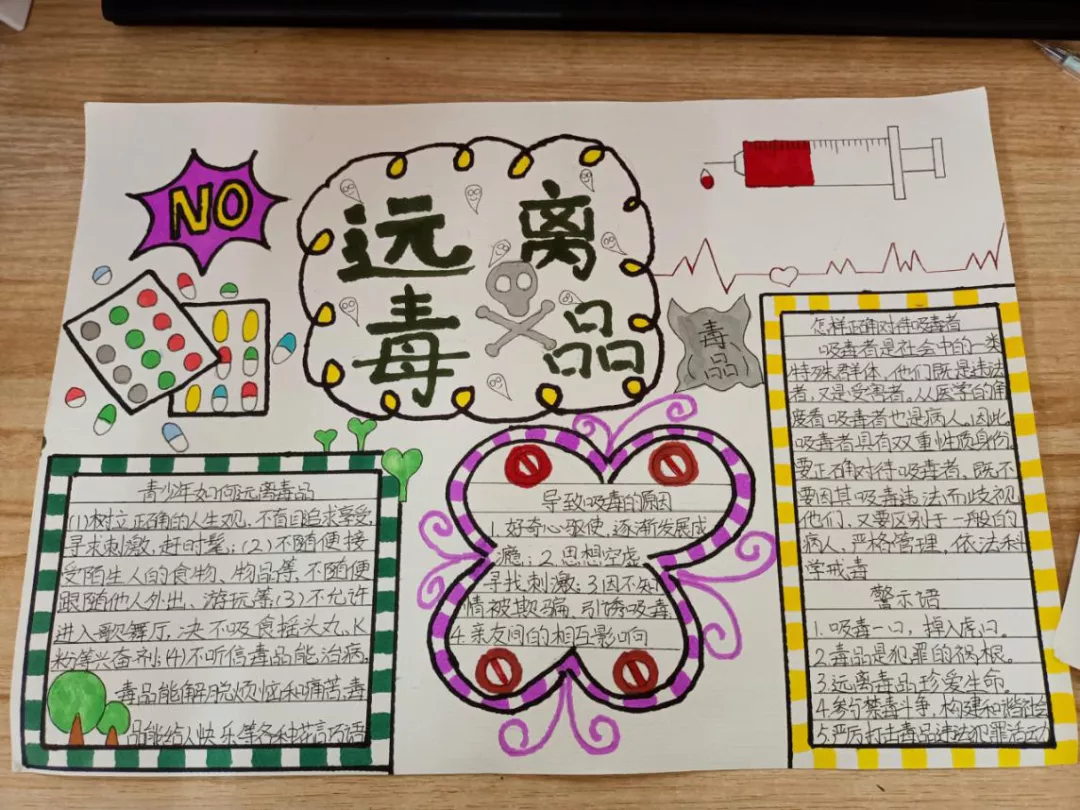 NO
远离
毒品
毒
品
青少年如何远离毒品
(1)树立正确的人生观,不盲目追求享受,
寻求刺激,赶时髦;(2)不随便接
受陌生人的食物、物品等,不随便
跟随他人外出、游玩等;(3)不允许
进入歌舞厅,决不吸食摇头丸、K
粉等兴奋剂;(4)不听信毒品能治病,
毒品能解脱烦恼和痛苦,毒
品能给人快乐等各种花言巧语
导致吸毒的原因
1.好奇心驱使,逐渐发展成
瘾;2.思想空虚,
寻找刺激;3因不知
情被欺骗、引诱吸毒
4.亲友间的相互影响
怎样正确对待吸毒者
吸毒者是社会中的一类
特殊群体,他们既是违法
者,又是受害者。从医学的角
度看吸毒者也是病人。因此
吸毒者具有双重性质身份。
要正确对待吸毒者,既不
要因其吸毒违法而歧视
他们,又要区别于一般的
病人,严格管理,依法科
学戒毒
警示语
1.吸毒一口,掉入虎口。
2.毒品是犯罪的祸根。
3.远离毒品珍爱生命。
4.参与禁毒斗争,构建和谐社会
5.严厉打击毒品违法犯罪活动